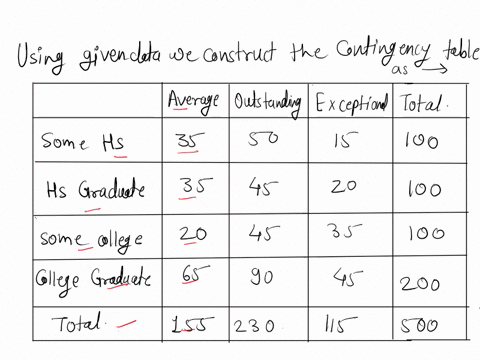 Using given data we construct the Contingency table
as →
Average Outstanding Exceptional Total.
Some Hs 35 50 15 100
Hs Graduate 35 45 20 100
Some college 20 45 35 100
College Graduate 65 90 45 200
Total. 155 230 115 500